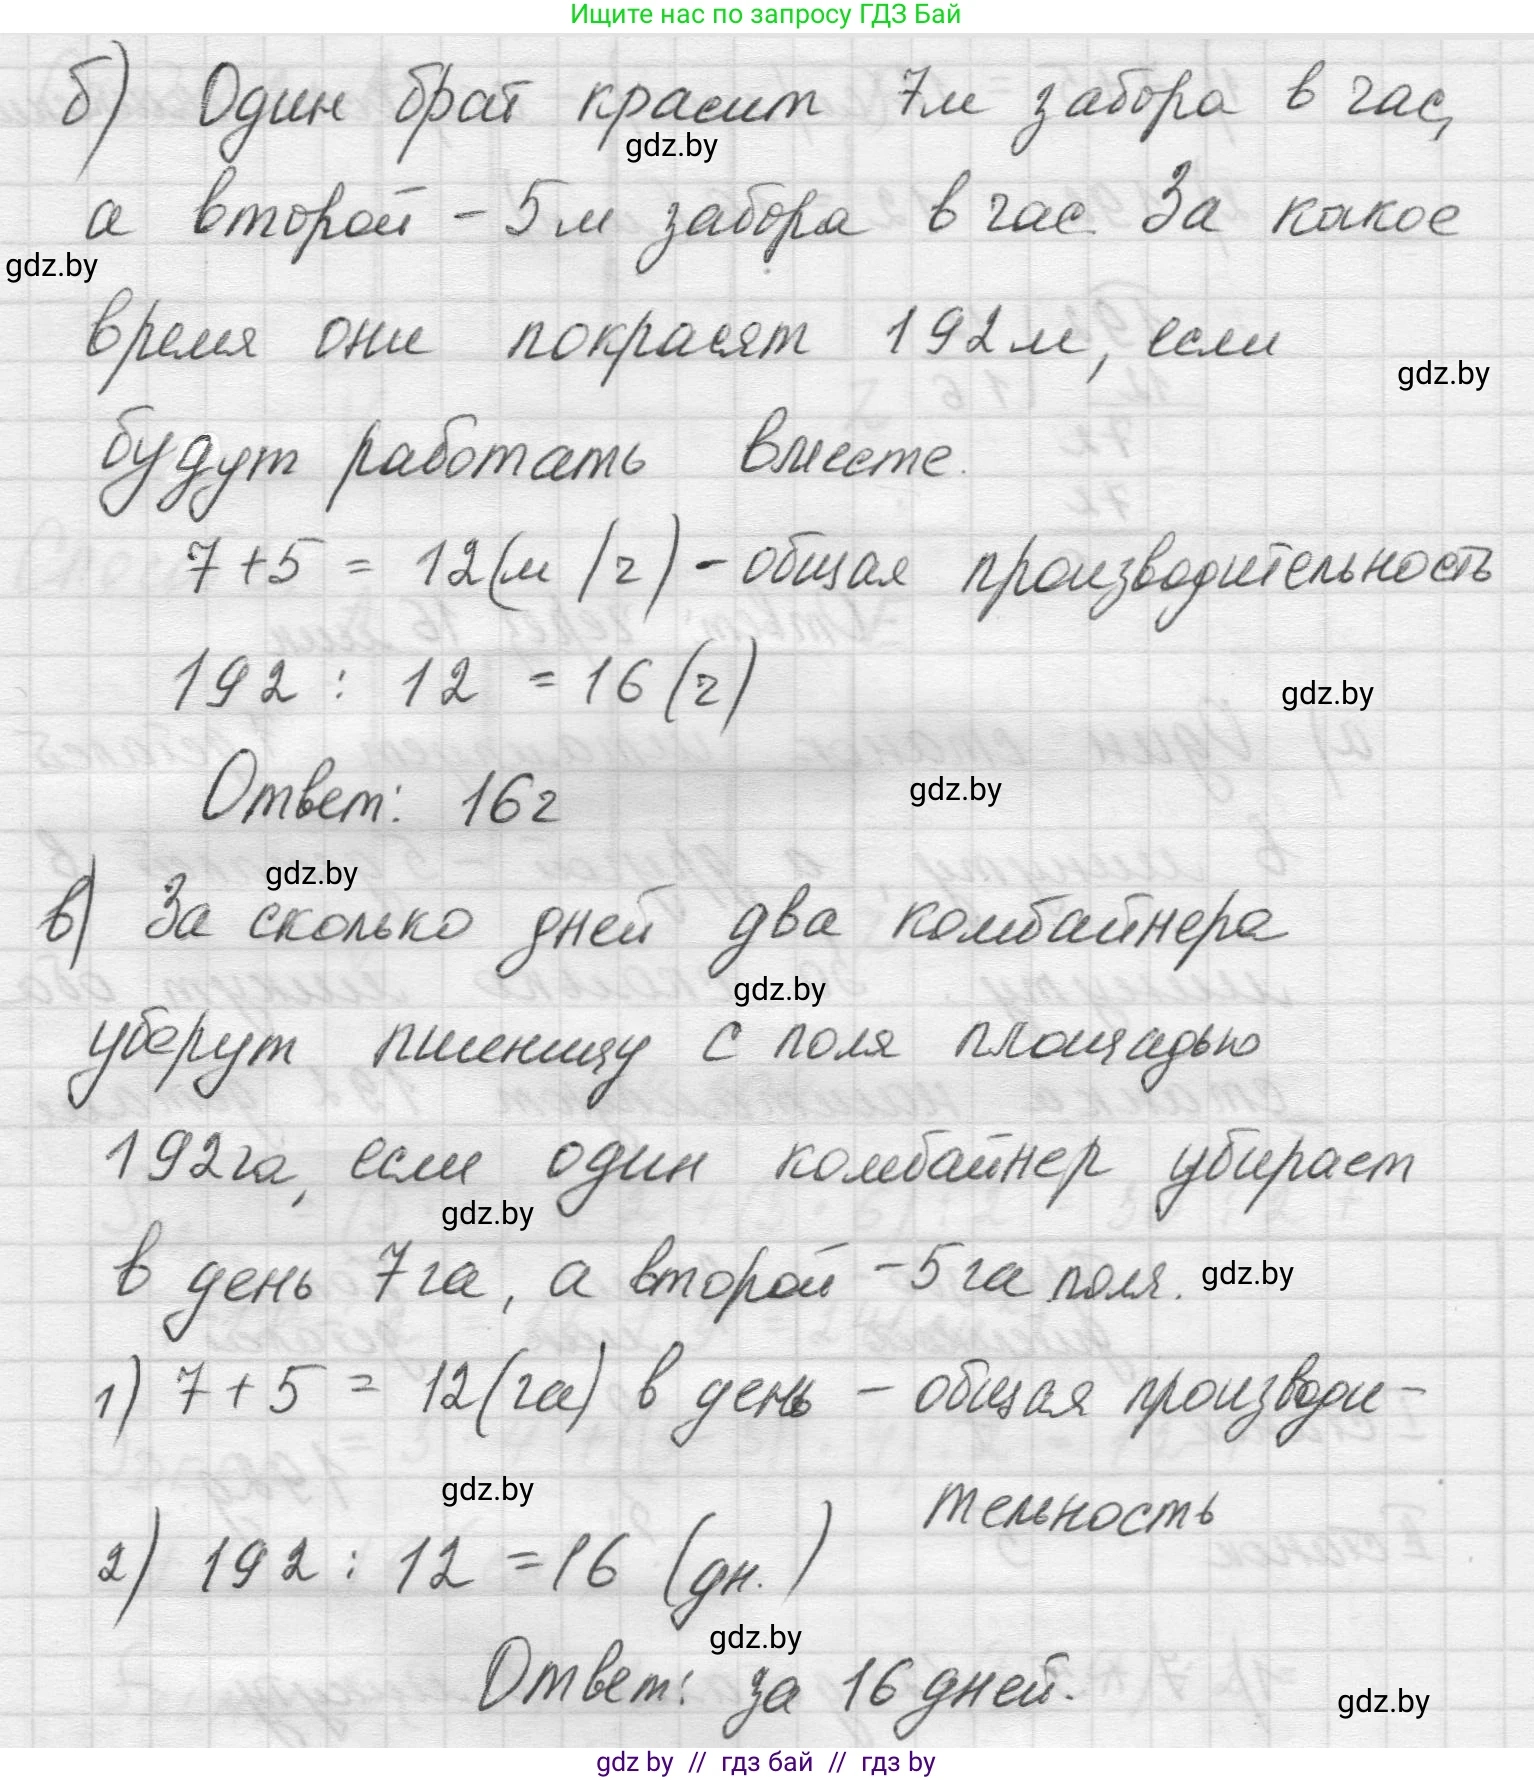 Ищите нас по запросу ГДЗ Бай
б) Один брат красит 7м забора в час,
gdz.by
а второй - 5м забора в час. За какое
gdz.by
время они покрасят 192м, если
gdz.by
будут работать вместе.
7+5 = 12(м/ч) - общая производительность
192 : 12 = 16(ч)
gdz.by
Ответ: 16ч
gdz.by
gdz.by
в) За сколько дней два комбайнера
gdz.by
уберут пшеницу с поля площадью
192га, если один комбайнер убирает
gdz.by
в день 7га, а второй - 5га поля.
gdz.by
1) 7+5 = 12(га) в день - общая производи-
gdz.by
тельность
2) 192 : 12 = 16 (дн.)
gdz.by
Ответ: за 16 дней.
gdz.by
gdz by // гдз бай // гдз by